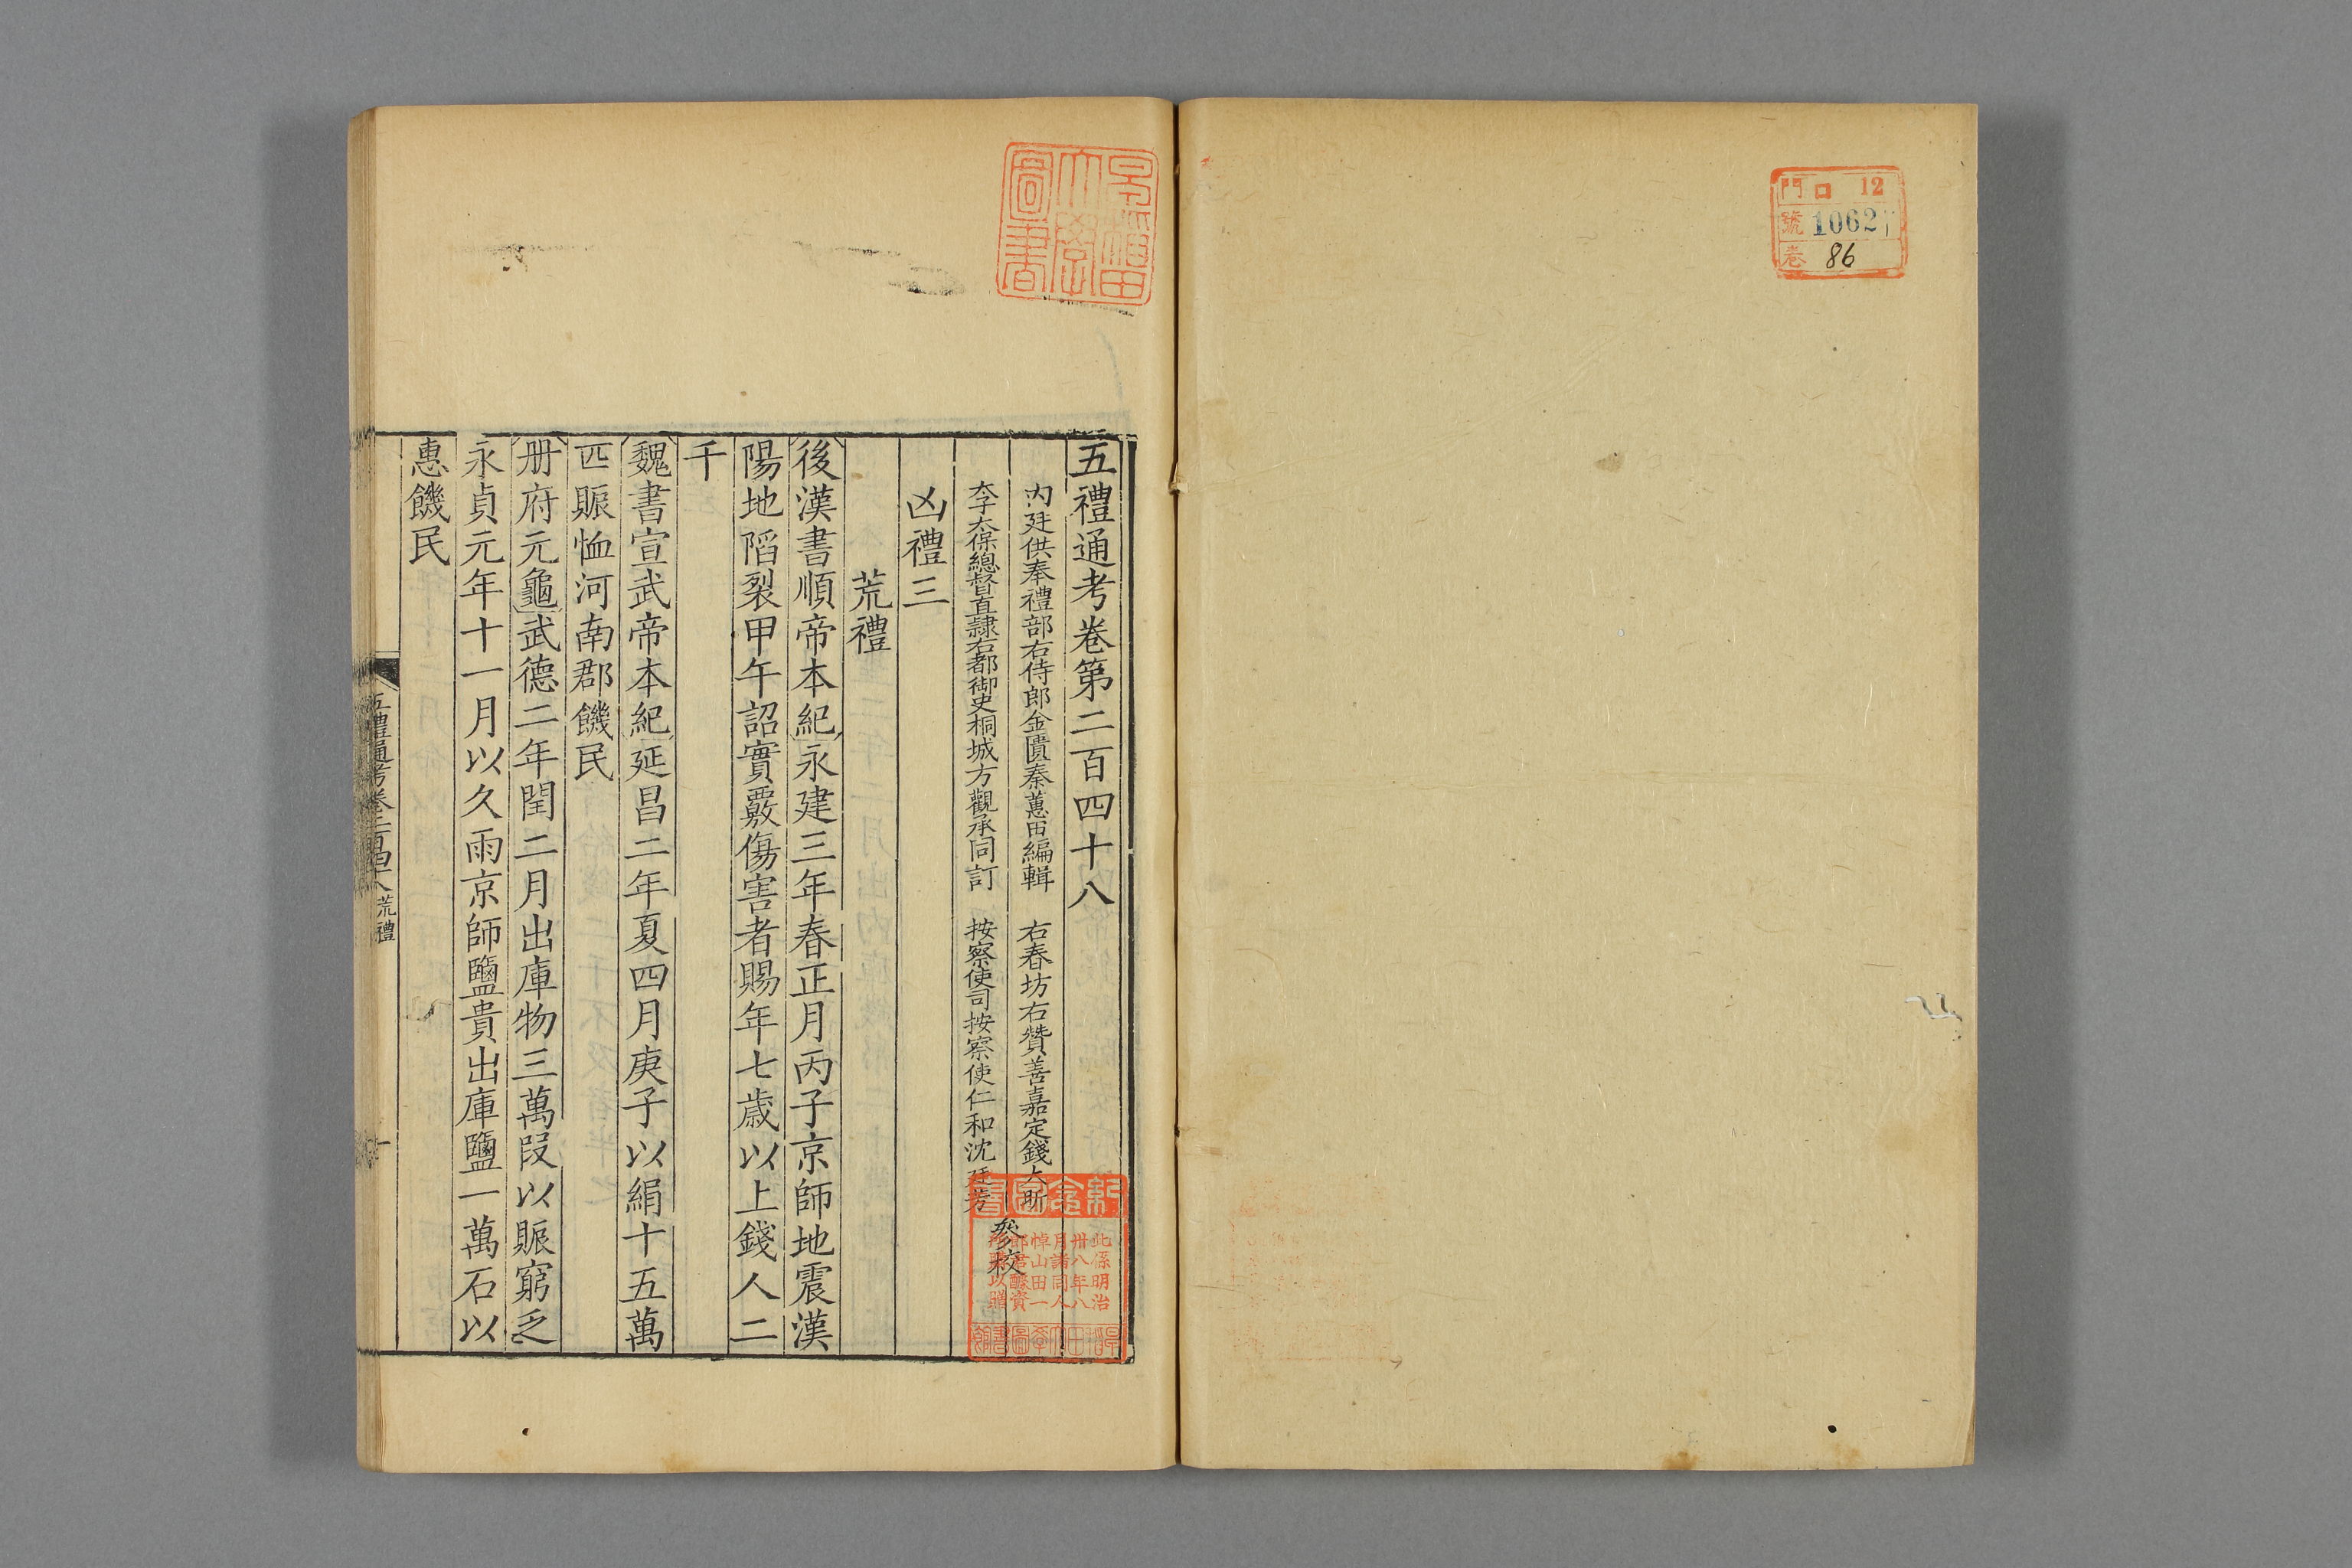 門 口 12
號 10627
卷 86
早稲田大學圖書
五禮通考卷第二百四十八
内廷供奉禮部右侍郎金匱秦蕙田編輯 右春坊右贊善嘉定錢大昕
太子太保總督直隷右都御史桐城方觀承同訂 按察使司按察使仁和沈廷芳
參校
凶禮三
荒禮
後漢書順帝本紀永建三年春正月丙子京師地震漢
陽地陷裂甲午詔實覈傷害者賜年七歲以上錢人二
千
魏書宣武帝本紀延昌二年夏四月庚子以絹十五萬
匹賑恤河南郡饑民
册府元龜武德二年閏二月出庫物三萬段以賑窮乏
永貞元年十一月以久雨京師鹽貴出庫鹽一萬石以
惠饑民
五禮通考卷二百四十八 荒禮
一
紀念圖書
此係明治
卅八年八
月諸同人
悼山田一
郎君醵資
以贈
早稻田大學圖書館